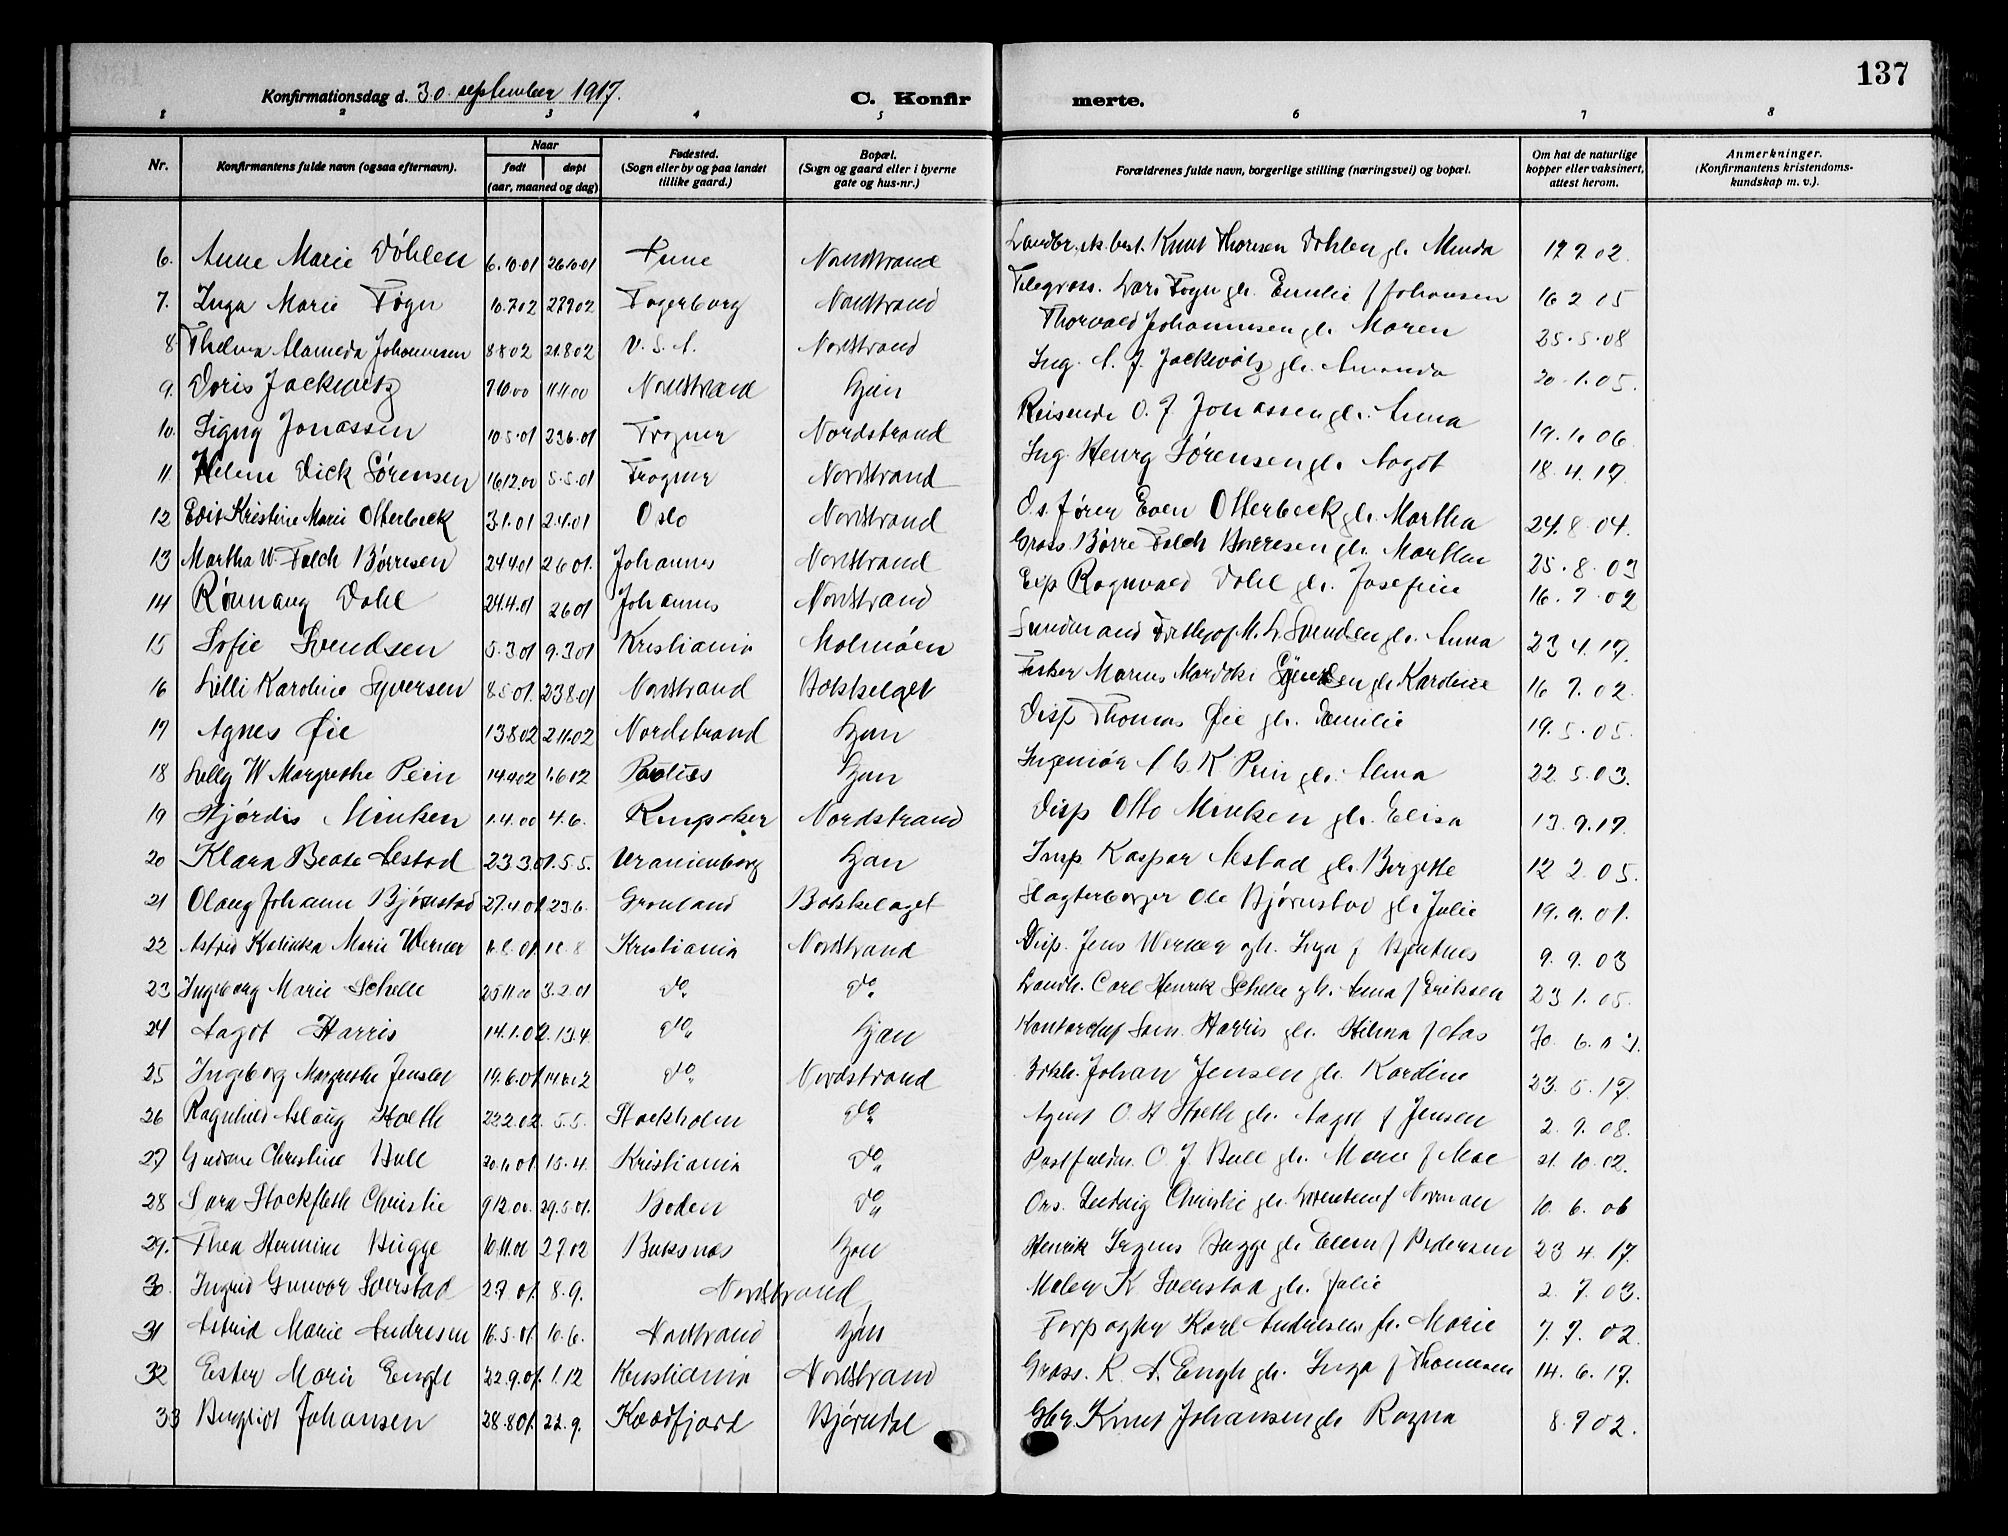 137
Konfirmationsdag d. 30. september 1917.
C. Konfir
merte.
1 2 3 4 5 6 7 8
Nr. Konfirmantens fulde navn (ogsaa efternavn). Naar født døpt (aar, maaned og dag) Fødested. (Sogn eller by og paa landet tillike gaard.) Bopæl. (Sogn og gaard eller i byerne gate og hus-nr.) Forældrenes fulde navn, borgerlige stilling (næringsvei) og bopæl. Om hat de naturlige kopper eller vaksinert, attest herom. Anmerkninger. (Konfirmantens kristendoms-kundskap m. v.).
6. Anne Marie Døhlen 6.10.01 26.10.01 Nordstrand Knut Thoresen Dohlen gh. Minda
7. Inga Marie Føgn 10.7.02 Fagerborg Nordstrand Lars Føgn gh. Emilie f Johansen 16 2 15
8 Thelma Alameda Johannesen 8 8 02 21.8 02 U. S. A. Nordstrand Thorvald Johannesen gh. Maren 25.5.08
9. Doris Jackwitz 7 10 00 11 11 00 Nordstrand Ljan Ing. A. J. Jackwitz gh. Amanda 20.1.05.
10. Signy Jonassen 10.5.01 23 6.01 Frogner Nordstrand Reisende O. J Jonassen gh. Anna 19.1.06
11. Helene Dick Sørensen 16 12.00 5.5.01 Frogner Nordstrand Ing. Henry Sørensen gh. Aagot 18.4.17.
12 Edit Kristine Marie Otterbeck 3.1.01 2.4.01 Oslo Nordstrand Even Otterbeck gh. Martha 24.8.04.
13 Martha W. Falch Børresen 24 4 01 2 6 01. Johannes Nordstrand Gross. Børre Falch Børresen gh. Martha 25.8.03
14 Rønnaug Dahl 24.4.01 2 6 01 Johannes Nordstrand Exp Ragnvald Dahl gh. Josefine 16.7.02
15 Sofie Svendsen 5.3 01 9.3 01 Kristiania Malmøen M. L. Svendsen gh. Anna 23 4.17.
16 Lilli Karoline Syversen 8 5 01. 23 8.01 Nordstrand Bækkelaget Marius gh Karoline 16 7.02.
17 Agnes Øie 13 8 02 2 11.02 Nordstrand Ljan Disp Thomas Øie gh. Emilie 19.5.05.
18 Lilly W Margrethe Pein Ljan Ingeniør K Pein gh. Anna 22.5.03.
19 Hjørdis Minken 1.4.00 4.6. Nordstrand Disp Otto Minken gh. Elisa 13.9.17.
20 Klara Beate Aestad 23 3.01. 5 5. Uranienborg Ljan Insp. Kaspar Aestad gh. Birgitte 12 2.05.
21 Olaug Johanne Bjørnstad 27.4 01. 23 6. Grønland Bækkelaget Ole Bjørnstad gh. Julie 19.9.01.
22 Astrid Katinka Marie Werner Kristiania Nordstrand Disp. Jens Werner gh. Inga f 9.9.03
23 Ingeborg Marie Schelle 25 11.00 3.2.01 do. do. Carl Henrik Schelle gh. Anna f Eriksen 23 1.05.
24 Aagot Harris 14.1.02. 13.4. do. Ljan Kontorchef Sam. Harris gh. Hilma f Aas
25 Ingeborg Margrethe Jensen 19.6.01. do. Nordstrand Johan Jensen gh. Karoline 23.5.17.
26 Ragnhild Aslaug Hoeth 22 2.02. 5.5. Stockholm do. Agent O. H Hoeth gh. Aagot f Jensen 2.9.08.
27 Gudrun Christine Bull 15.4. Kristiania do. Postfuldm. O. J. Bull gh. Marie f Moe 21.10.02.
28 Sara Stockfleth Christie 9 12.00. 29.5.01. Boden do. Ludvig Christie gh. Norman 10.6.06
29. Thea Hermine Bugge Buksnæs Ljan Henrik Irgens Bugge gh f Pedersen 23 4.17.
30. Ingrid Gunvor Sverstad 2 7 01. 8.9. Nordstrand Maler K Sverstad gh. Julie 2.7.03.
31 Astrid Marie Andresen 16.5.01. 16.6. Nordstrand Ljan Karl Andresen gh. Marie 7.7.02.
32 Ester Marie Engh 22.9.01. 1.12 Kristiania Nordstrand Gross. K. A. Engh gh. Inga f Thomesen 14.6.17.
33 Bergliot Johansen 28.8 01. 22.9. Kaafjord Bjørndal Knut Johansen gh Ragna 8.9 02.